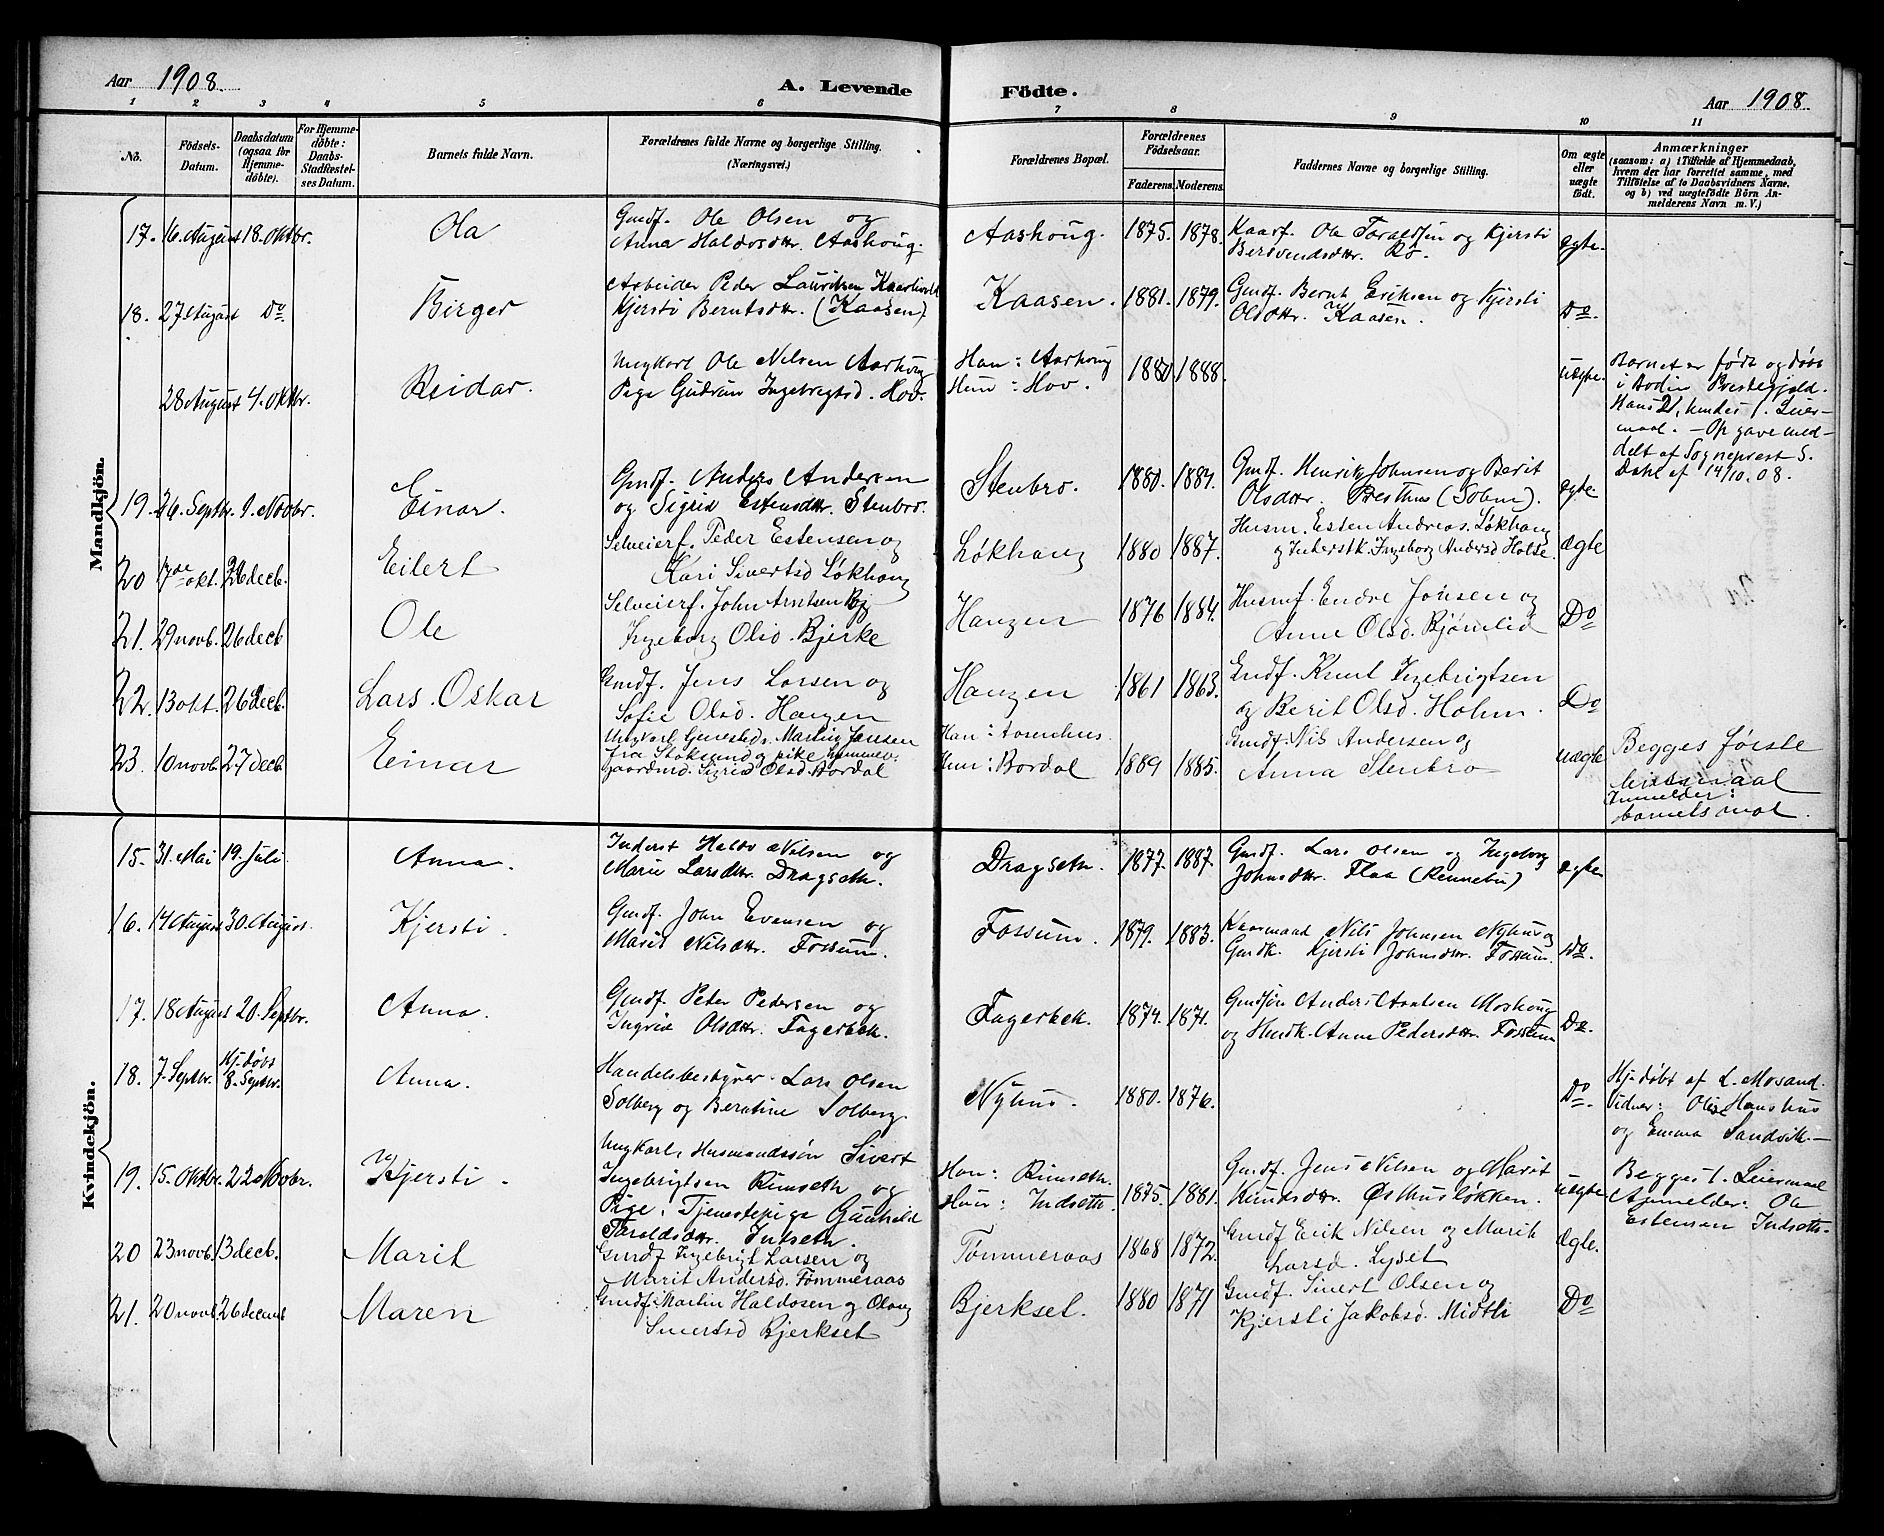 Aar 1908.
A. Levende Födte.
Aar 1908.
1 2 3 4 5 6 7 8 9 10 11
No.
Födsels-Datum.
Daabsdatum (ogsaa for Hjemmedöbte).
For Hjemmedöbte: Daabs-Stadfæstelses Datum.
Barnets fulde Navn.
Forældrenes fulde Navne og borgerlige Stilling. (Næringsvei.)
Forældrenes Bopæl.
Forældrenes Födselsaar.
Faderens. Moderens.
Faddernes Navne og borgerlige Stilling.
Om ægte eller uægte födt.
Anmærkninger
(saasom: a) i Tilfælde af Hjemmedaab, hvem der har forrettet samme, med Tilföielse af to Daabsvidners Navne, og b) ved uægtefödte Börn Anmelderens Navn m. V.)
Mandkjön.
17. 16. August 18. Oktbr. Ola
Gmdf. Ole Olsen og
Anna Haldosdttr. Aashoug.
Aashoug. 1875. 1878.
Kaarf. Ole Taraldsen og Kjersti
Bersvendsdttr. Rö.
ægte.
18. 27 August Do. Birger
Arbeider Peder Lauritsen
Kjersti Berntsdttr. (Kaasen)
Kaasen. 1881. 1879.
Gmdf. Bernt Eriksen og Kjersti
Olsdttr. Kaasen.
Do.
28 August 4. Oktbr. Reidar.
Ungkarl Ole Nilsen Aashoug
Pige Gudrun Ingebrigtsd. Hov.
Han: Aashoug
Hun: Hov.
1880 1888.
uægte.
Barnet er født og døbt
i Prestegjeld.
Hans 2, hendes 1. Leier-
maal. - Opgave med-
delt af Sogneprest S.
Dahl af 14/10. 08.
19. 26. Septbr. 1. Novbr. Einar.
Gmdf. Anders Andersen
og Sigrid Estensdttr. Stenbro.
Stenbro. 1880. 1884.
Gmdf. Henrik Johnsen og Berit
Olsdttr. Presthus (Soknd).
ægte
20 7de okt. 26 decb. Eilert
Selveierf. Peder Estensen og
Kari Sivertsd Løkhaug
Løkhaug 1880 1887.
Husm. Esten Andreas. Løkhaug
og Inderstk. Ingeborg Andersd Holte
Ægte
21. 29 novb. 26 decb Ole
Selveierf. John Arntsen og
Ingeborg Olsd. Bjerke
Haugen 1876 1884.
Husmf. Endre Jonsen og
Anne Olsd. Bjørnlid
Do
22. 13 okt. 26 decb. Lars Oskar
Gmdf. Jens Larsen og
Sofie Olsd. Haugen
Haugen 1861 1863.
Gmdf. Knut Ingebrigtsen
og Berit Olsd. Holum.
Do
23. 10 novb. 27 decb Einar
Ungkarl Martin Jansen
fra Stoksund og pike
Sigrid Olsd. Bordal
Han: Aasenhus.
Hun: Bordal
1889 1885.
Gmdf. Nils Andersen og
Anna Stenbro
uægte
Begges første
leiermaal
Anmelder:
barnets mor.
Kvindekjön.
15. 31. Mai 19. Juli. Anna.
Inderst Haldo Nilsen og
Marie Larsdttr. Dragseth.
Dragseth. 1877. 1887.
Gmdf. Lars Olsen og Ingeborg
Johnsdttr. Flaa (Rennebu)
Ægte
16. 14 August 30. August. Kjersti.
Gmdf. John Evensen og
Marit Nilsdttr. Fossum.
Fossum. 1879. 1883.
Kaarmand Nils Johnsen Nyhus og
Gmdk. Kjersti Johnsdttr. Fossum.
Do.
17. 18 August 20. Septbr. Anna.
Gmdf. Peter Pedersen og
Ingrid Olsdttr. Fagerbek.
Fagerbek. 1874. 1871.
Gmdsön Anders Moshoug
og Husmk. Anne Pedersdttr. Fossum
Do.
18. 7. Septbr. Hj. døbt 8. Septbr. Anna.
Handelsbestyrer Lars Olsen
Solberg og Berntine Solberg.
Nyhus. 1880. 1876.
Do.
Hj. døbt af L. Mosand.
Vidner: Hanshus
og Emma Sandvik.
19. 15. Oktbr. 22 Novbr. Kjersti.
Ungkarl, Husmandssön Sivert
Ingebrigtsen Rimseth og
Pige, Tjenestepige Gunhild
Taraldsdttr. Indseth.
Han: Rimseth.
Hun: Indseth.
1875. 1881.
Gmdf. Jens Nilsen og Marit
Knudsdttr. Østhusløkken.
uægte
Begges 1. Leiermaal
Anmelder: Ole
Estensen Indseth.
20 23 novb. 13 decb. Marit
Gmdf Ingebrigt Larsen og
Marit Andersd. Tømmeraas
Tømmeraas 1868 1872.
Gmdf Erik Nilsen og Marit
Larsd. Lyset
Ægte.
21. 20 novb. 26 decemb Maren
Gmdf. Martin Haldosen og Olaug
Sivertsd Bjerkset
Bjerkset. 1880 1871
Gmdf. Sivert Olsen og
Kjersti Jakobsd. Midtli
Do